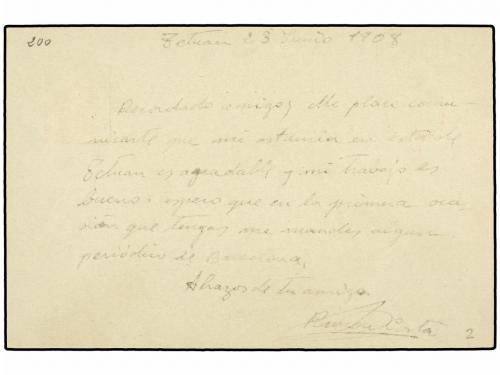 200
Tetuan 23 Junio 1908
Recordado amigo; Me place comu-
nicarte que mi estancia en esta de
Tetuan es agradable y mi trabajo es
bueno; espero que en la primera oca-
sión que tengas me mandes algun
periódico de Barcelona,
Abrazos de tu amigo
Costa
2